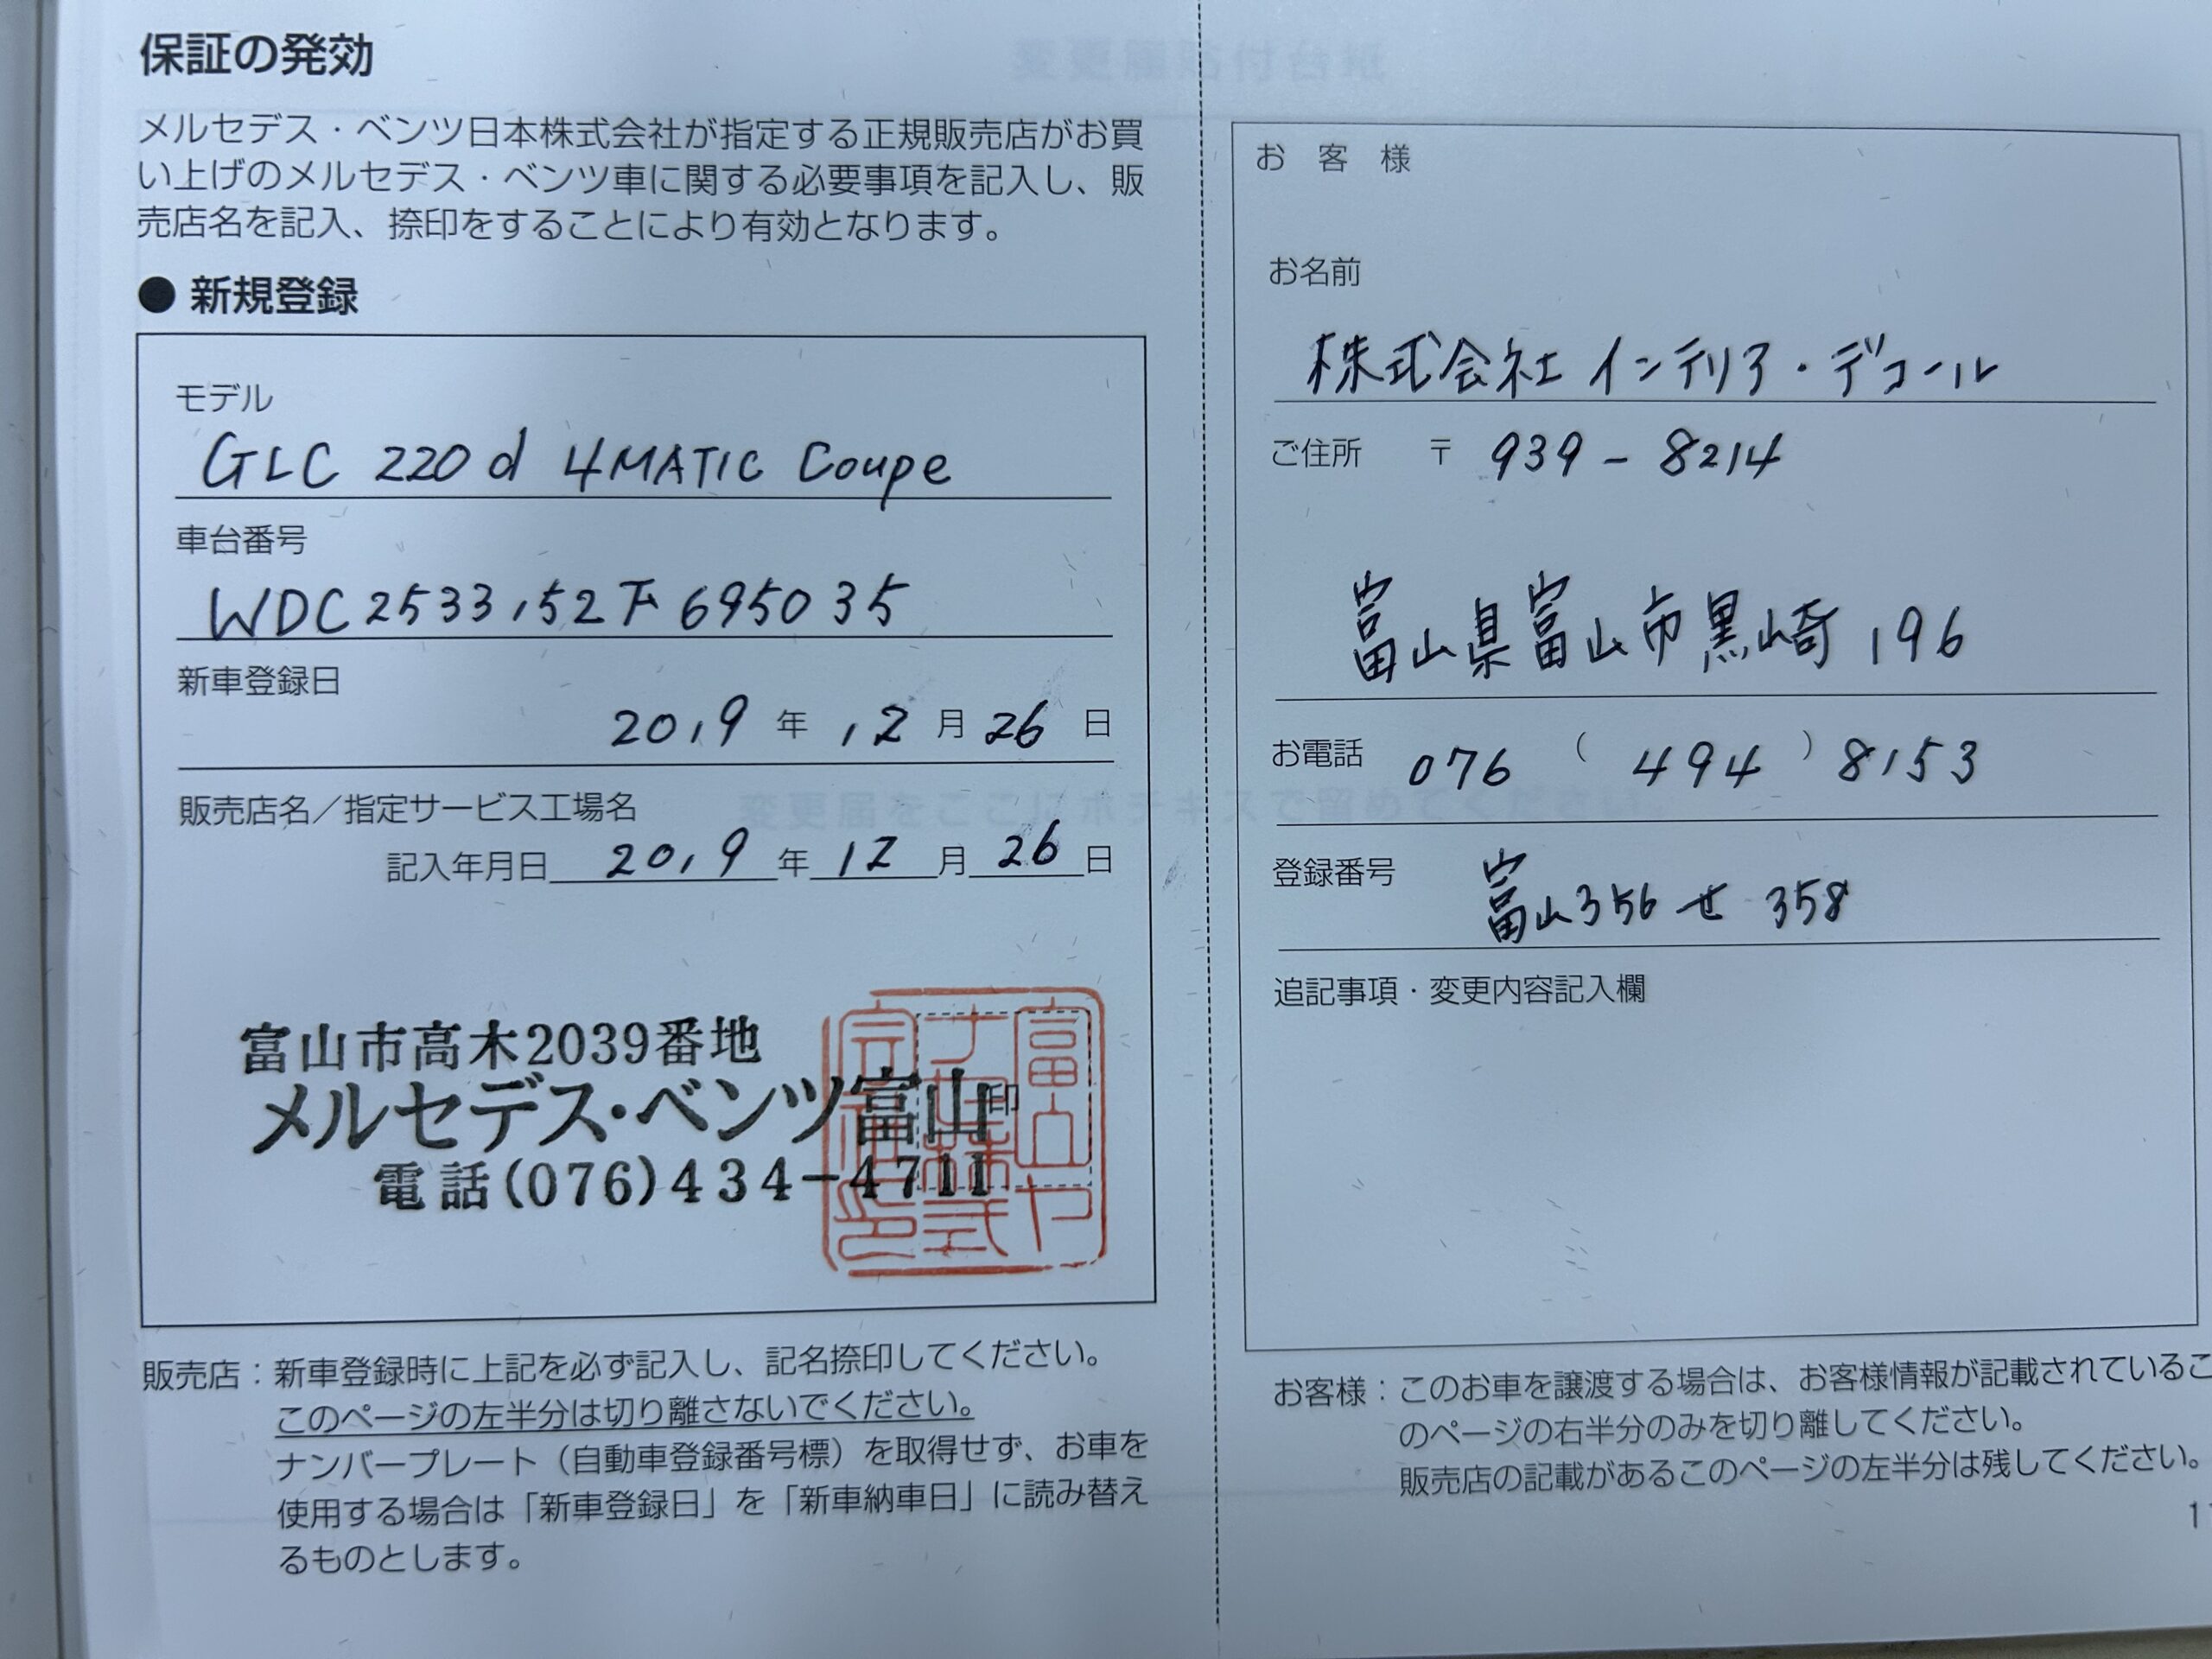 保証の発効
メルセデス・ベンツ日本株式会社が指定する正規販売店がお買
い上げのメルセデス・ベンツ車に関する必要事項を記入し、販
売店名を記入、捺印をすることにより有効となります。
● 新規登録
モデル
GLC 220 d 4MATIC Coupe
車台番号
WDC2533152F695035
新車登録日
2019 年 12 月 26 日
販売店名／指定サービス工場名
記入年月日 2019 年 12 月 26 日
富山市高木2039番地
メルセデス・ベンツ富山 印
電話(076)434-4711
販売店：新車登録時に上記を必ず記入し、記名捺印してください。
このページの左半分は切り離さないでください。
ナンバープレート（自動車登録番号標）を取得せず、お車を
使用する場合は「新車登録日」を「新車納車日」に読み替え
るものとします。
お 客 様
お名前
株式会社 インテリア・デコール
ご住所 〒 939-8214
富山県富山市黒崎 196
お電話 076 ( 494 ) 8153
登録番号 富山356 せ 358
追記事項・変更内容記入欄
お客様：このお車を譲渡する場合は、お客様情報が記載されているこ
のページの右半分のみを切り離してください。
販売店の記載があるこのページの左半分は残してください。